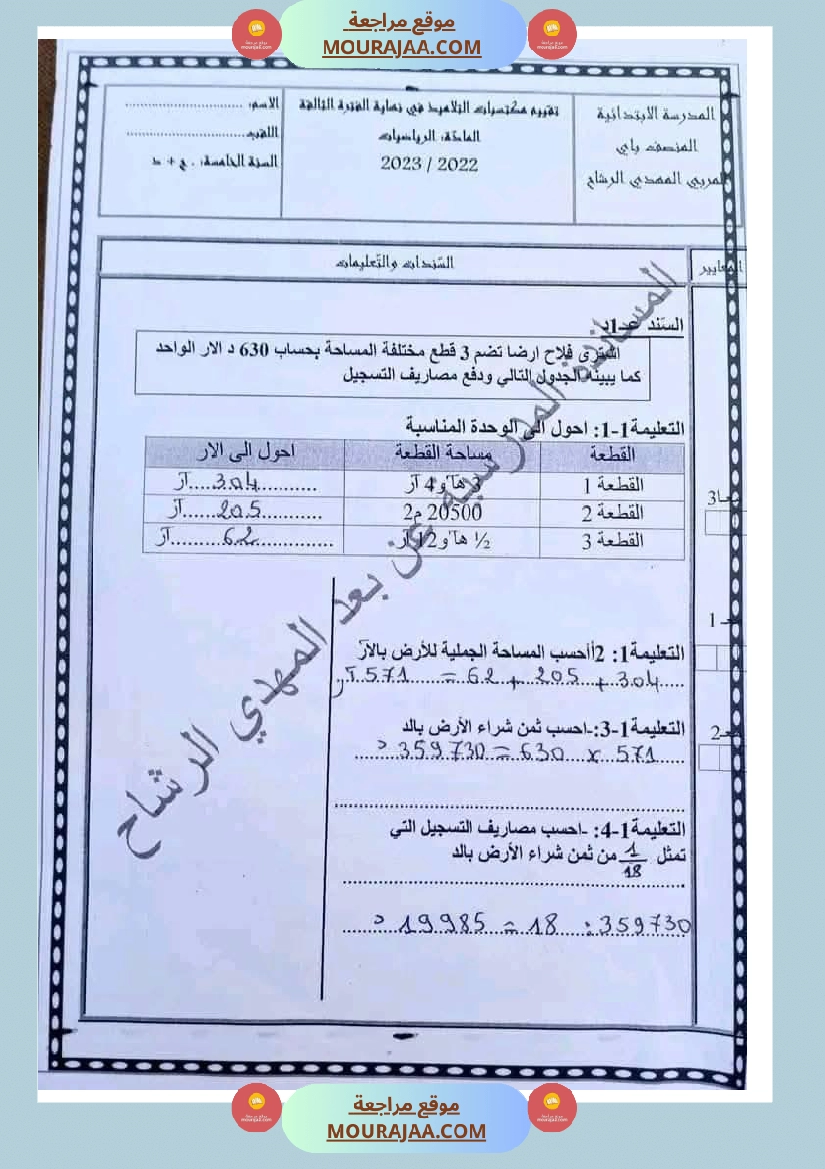 موقع مراجعة
MOURAJAA.COM
المدرسة الابتدائية
المنصف باي
المربي المهدي الرشاح
تقييم مكتسبات التلاميذ في نهاية الفترة الثالثة
المادة: الرياضيات
2023 / 2022
الاسم: ............................
اللقب............................
السنة الخامسة: . ج + د
المعايير
السندات والتعليمات
السند عـ1ـدد
اشترى فلاح ارضا تضم 3 قطع مختلفة المساحة بحساب 630 د الار الواحد
كما يبينه الجدول التالي ودفع مصاريف التسجيل
التعليمة1-1: احول الى الوحدة المناسبة
القطعة مساحة القطعة احول الى الار
القطعة 1 3 هآ و4 آر ............304....آر
القطعة 2 20500 م2 ...........205......آر
القطعة 3 ½ هآ و12 آر ............62.........آر
معـ3ا
مـ1
التعليمة1: 2أأحسب المساحة الجملية للأرض بالآر
304 + 205 + 62 = 571 آر
مـ2
التعليمة1-3:-احسب ثمن شراء الأرض بالد
571 x 630 = 359730 د
التعليمة1-4: -احسب مصاريف التسجيل التي
تمثل 1/18 من ثمن شراء الأرض بالد
359730 : 18 = 19985 د
المساندة المدرسية عن بعد المهدي الرشاح
موقع مراجعة
MOURAJAA.COM